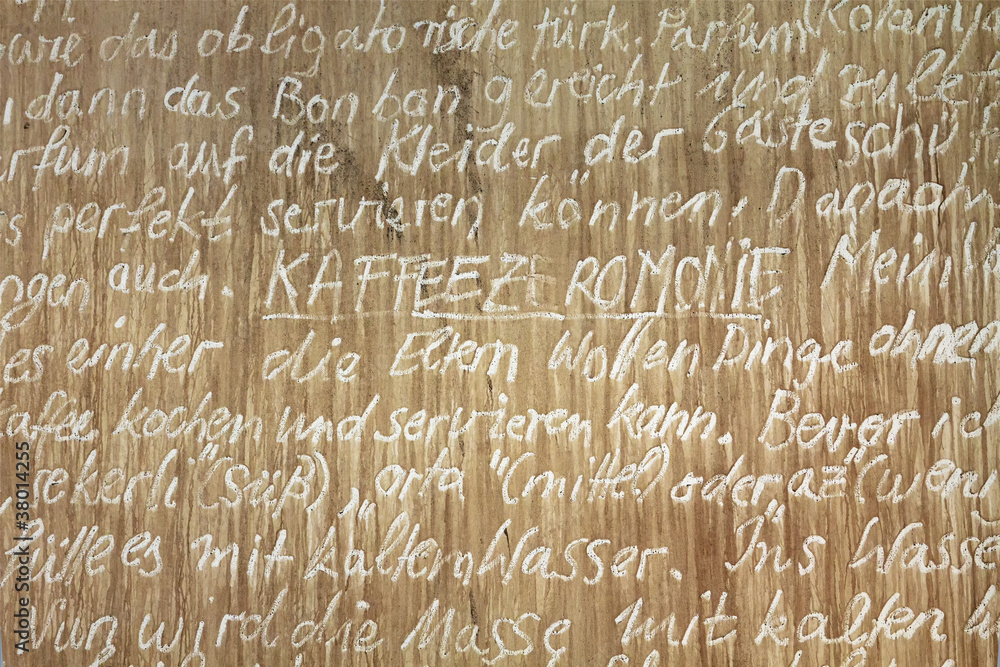 wie das obligatorische türk. Parfum (Kolonya
dann das Bonbon gereicht und zuletzt
rfum auf die Kleider der Gäste schü
s perfekt servieren können. Danach
ngen auch. KAFFEEZEROMONIE Mein
es einher die Eltern wollen Dinge ohne
kochen und servieren kann. Bevor ich
ekerli" (süß), "orta" (mittel) oder "az" (weni
fülle es mit kaltem Wasser. Ins Wasse
Nun wird die Masse mit kaltem
Adobe Stock | #38014255